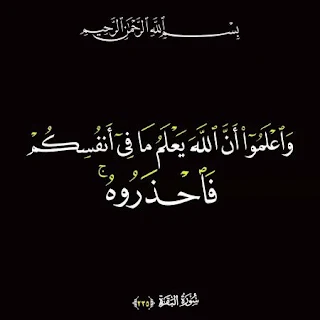 بِسْمِ ٱللَّهِ ٱلرَّحْمَٰنِ ٱلرَّحِيمِ
وَٱعْلَمُوٓا۟ أَنَّ ٱللَّهَ يَعْلَمُ مَا فِىٓ أَنفُسِكُمْ
فَٱحْذَرُوهُ ۚ
سُورَةُ البَقَرَة ﴿٢٣٥﴾